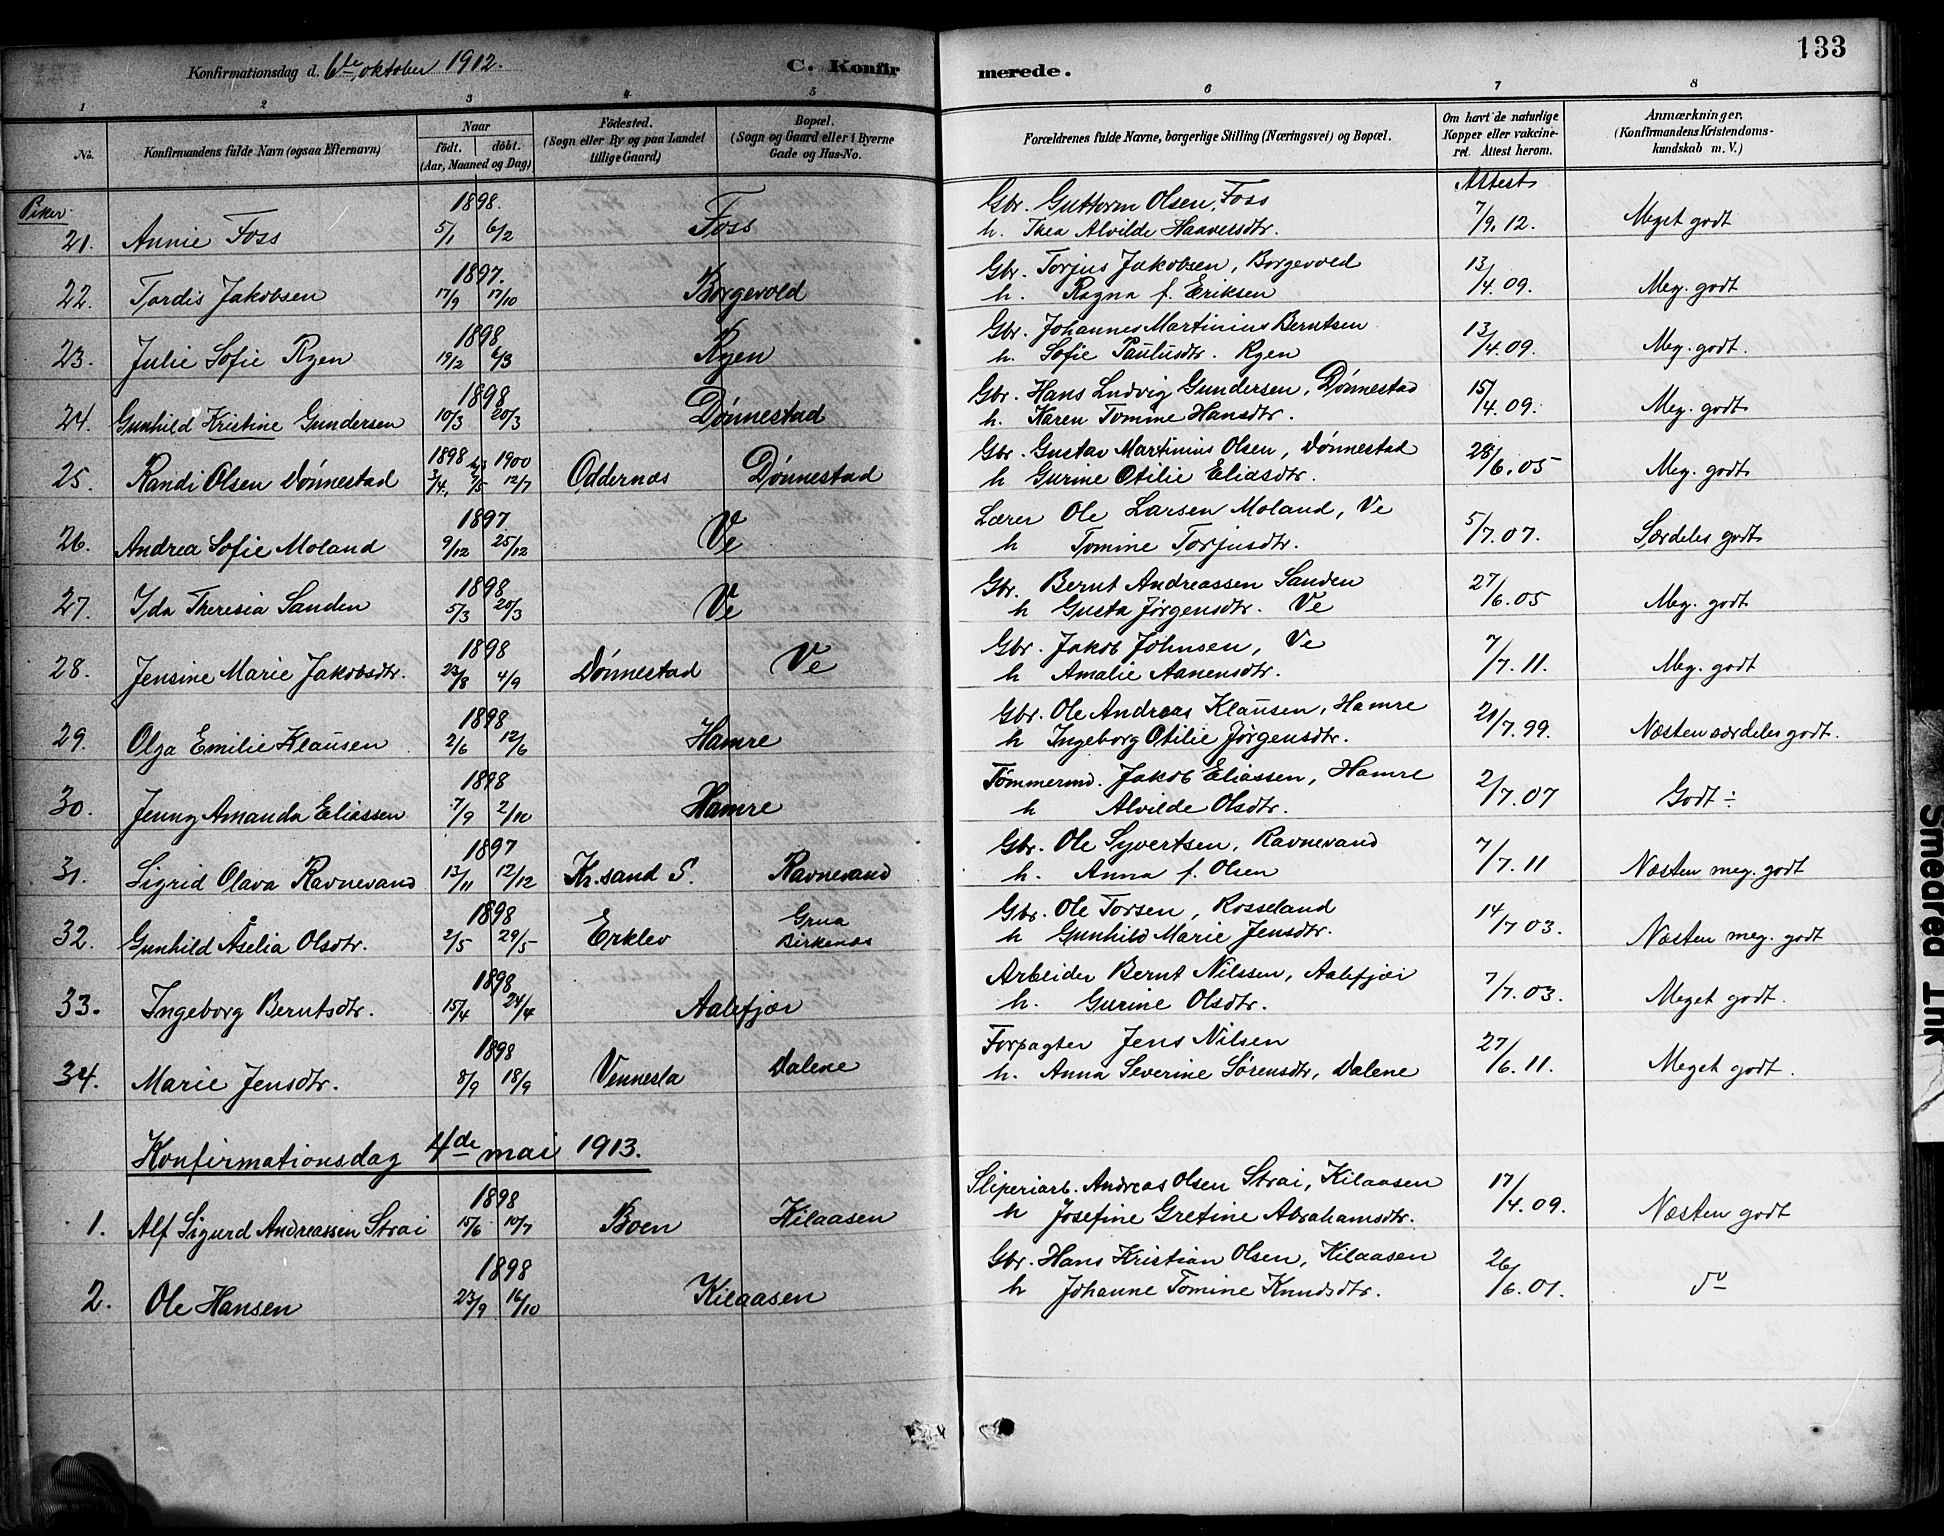 133
Konfirmationsdag d. 6te oktober 1912. C. Konfirmerede.
1 2 3 4 5 6 7 8
No. Konfirmandens fulde Navn (ogsaa Efternavn) Naar födt. döbt. (Aar, Maaned og Dag) Födested. (Sogn eller By og paa Landet tillige Gaard) Bopæl. (Sogn og Gaard eller i Byerne Gade og Hus-No. Forældrenes fulde Navne, borgerlige Stilling (Næringsvei) og Bopæl. Om havt de naturlige Kopper eller vakcineret. Attest herom. Anmærkninger. (Konfirmandens Kristendomskundskab m. V.)
Piker. 1898. Gbr. Guttorm Olsen, Foss Attest
21. Annie Foss 5/1 6/2 Foss h. Thea Alvilde Haavessdtr. 7/9.12. Meget godt
1897. Gbr. Torjus Jakobsen, Borgevold
22. Tordis Jakobsen 17/9 17/10 Borgevold h. Ragna f. Eriksen 13/4.09. Meg. godt
1898 Gbr. Johannes Martinius Berntsen
23. Julie Sofie Ryen 19/2 6/3 Ryen h. Sofie Paulusdtr. Ryen 13/4.09. Meg. godt.
1898 Gbr. Hans Ludvig Gundersen, Dønnestad
24. Gunhild Kristine Gundersen 10/3 20/3 Dønnestad h. Karen Tomine Hansdtr. 15/4.09. Meg. godt
1898 1900 Gbr. Gustav Martinius Olsen, Dønnestad
25. Randi Olsen Dønnestad 3/4. 7/5 12/7 Oddernæs Dønnestad h Gurine Otilie Eliasdtr. 28/6.05 Meg. godt
1897. Lærer Ole Larsen Moland, Ve
26. Andrea Sofie Moland 9/12 25/12 Ve h Tomine Torjusdtr. 5/7.07. Særdeles godt
1898 Gbr. Bernt Andreassen Sanden
27. Ida Theresia Sanden 5/3 20/3 Ve h Gusta Jørgensdtr. Ve 27/6.05 Meg. godt
1898 Gbr. Jakob Johnsen, Ve
28. Jensine Marie Jakobsdtr. 23/8 4/9 Dønnestad Ve h Amalie Aanensdtr. 7/7.11. Meg. godt
1898 Gbr. Ole Andreas Klausen, Hamre
29. Olga Emilie Klausen 2/6 12/6 Hamre h Ingeborg Otilie Jørgensdtr. 21/7.99. Næsten særdeles godt.
1898 Tømmermd. Jakob Eliassen, Hamre
30. Jenny Amanda Eliassen 7/9 2/10 Hamre h Alvilde Olsdtr. 2/7.07 Godt ÷
1897 Gbr. Ole Syvertsen, Ravnevand
31. Sigrid Olava Ravnevand 13/11 12/12 Kr.sand S. Ravnevand h. Anna f. Olsen 7/7.11 Næsten meg. godt
1898 Grua Gbr. Ole Torsen, Rosseland
32. Gunhild Åselia Olsdtr. 2/5 29/5 Erklev Birkenæs h Gunhild Marie Jensdtr. 14/7 03. Næsten meg. godt
1898 Arbeider Bernt Nilssen, Aalefjær
33. Ingeborg Berntsdtr. 15/4 24/4 Aalefjær h. Gurine Olsdtr. 7/7.03. Meget godt.
1898 Forpagter Jens Nilsen
34. Marie Jensdtr. 8/9 18/9 Vennesla Dalene h. Anna Severine Sørensdtr, Dalene 27/6.11. Meget godt.
Konfirmationsdag 4de mai 1913.
1898 Sliperiarb. Andreas Olsen Strai, Kilaasen
1. Alf Sigurd Andreassen Strai 15/6 10/7 Boen Kilaasen h Josefine Gretine Abrahamsdtr. 17/4.09. Næsten godt
1898 Gbr. Hans Kristian Olsen, Kilaasen
2. Ole Hansen 23/9 16/10 Kilaasen h Johanne Tomine Knudsdtr. 26/6.01. do
Smeared Ink